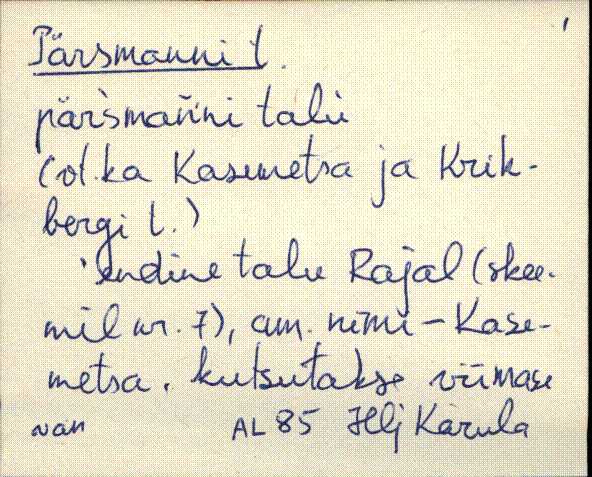 Pärsmanni t.
pär̀smańni talu
(vt. ka Kasemetsa ja Krik-
bergi t.)
`endine talu Rajal (skee-
mil nr. 7), am. nimi - Kase-
metsa. kutsutakse viimase
van AL 85 Hlj Karula